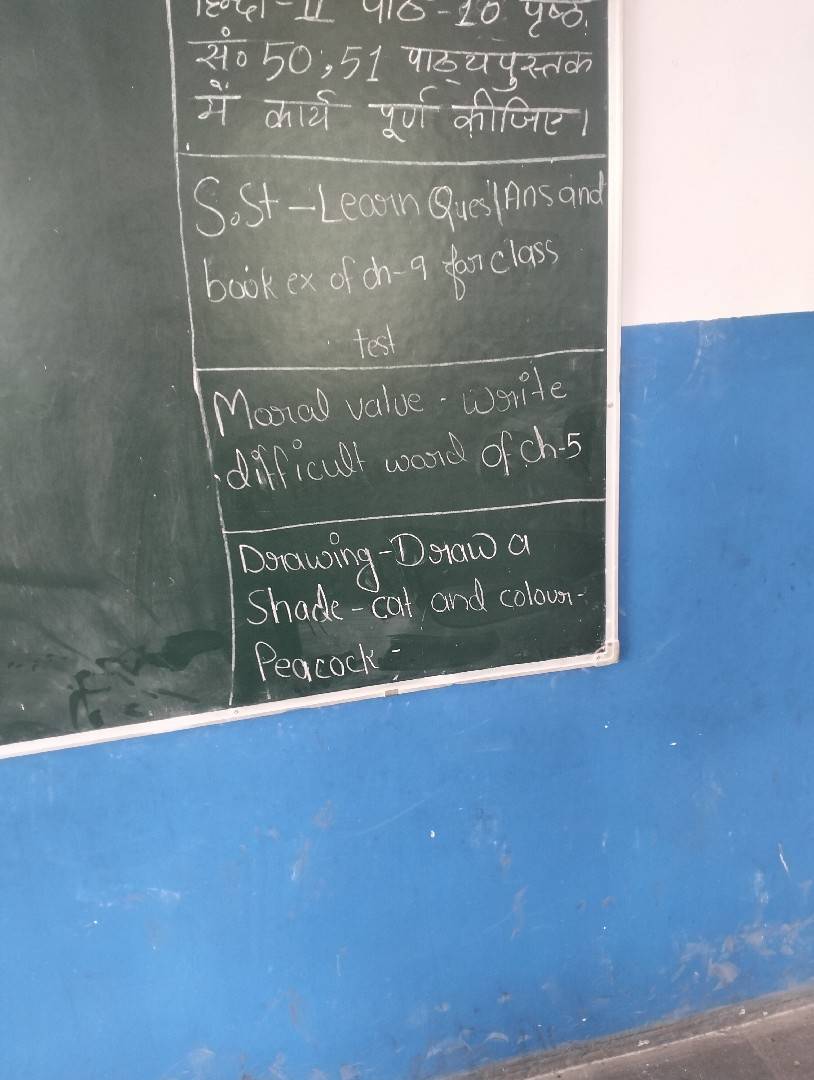 हिन्दी-II पाठ-10 पृष्ठ.
सं० 50,51 पाठ्यपुस्तक
में कार्य पूर्ण कीजिए।
S.St - Learn Ques/Ans and
book ex of ch-9 for class
test
Moral value - write
difficult word of ch-5
Drawing - Draw a
Shade - cat and colour -
Peacock -